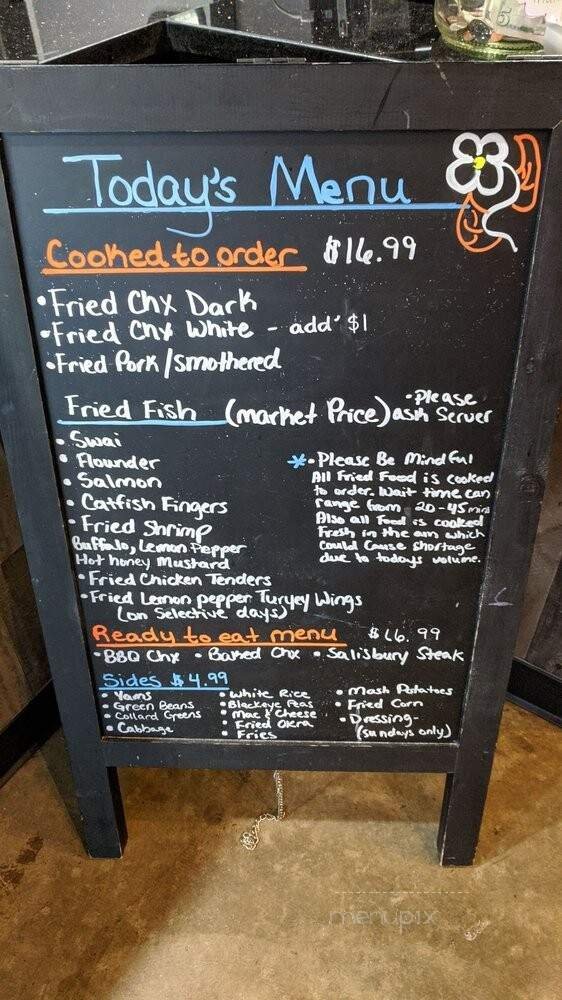 Today's Menu
Cooked to order $16.99
• Fried Chx Dark
• Fried Chx White - add' $1
• Fried Pork/smothered
Fried Fish (market Price) • Please ask Server
• Swai
• Flounder
• Salmon
• Catfish Fingers
• Fried Shrimp
Buffalo, Lemon Pepper
Hot honey Mustard
• Fried Chicken Tenders
• Fried Lemon pepper Turyey Wings
(on Selective days)
* • Please Be Mindful
All Fried Food is cooked
to order. Wait time can
range from 20-45 mins
Also all Food is cooked
Fresh in the am which
Could Cause shortage
due to todays volume.
Ready to eat menu $16.99
• BBQ Chx • Baked Chx • Salisbury Steak
Sides $4.99
• Yams
• Green Beans
• Collard Greens
• Cabbage
• White Rice
• Blackeye Peas
• Mac & Cheese
• Fried Okra
• Fries
• Mash Potatoes
• Fried Corn
• Dressing-
(sundays only)
menupix